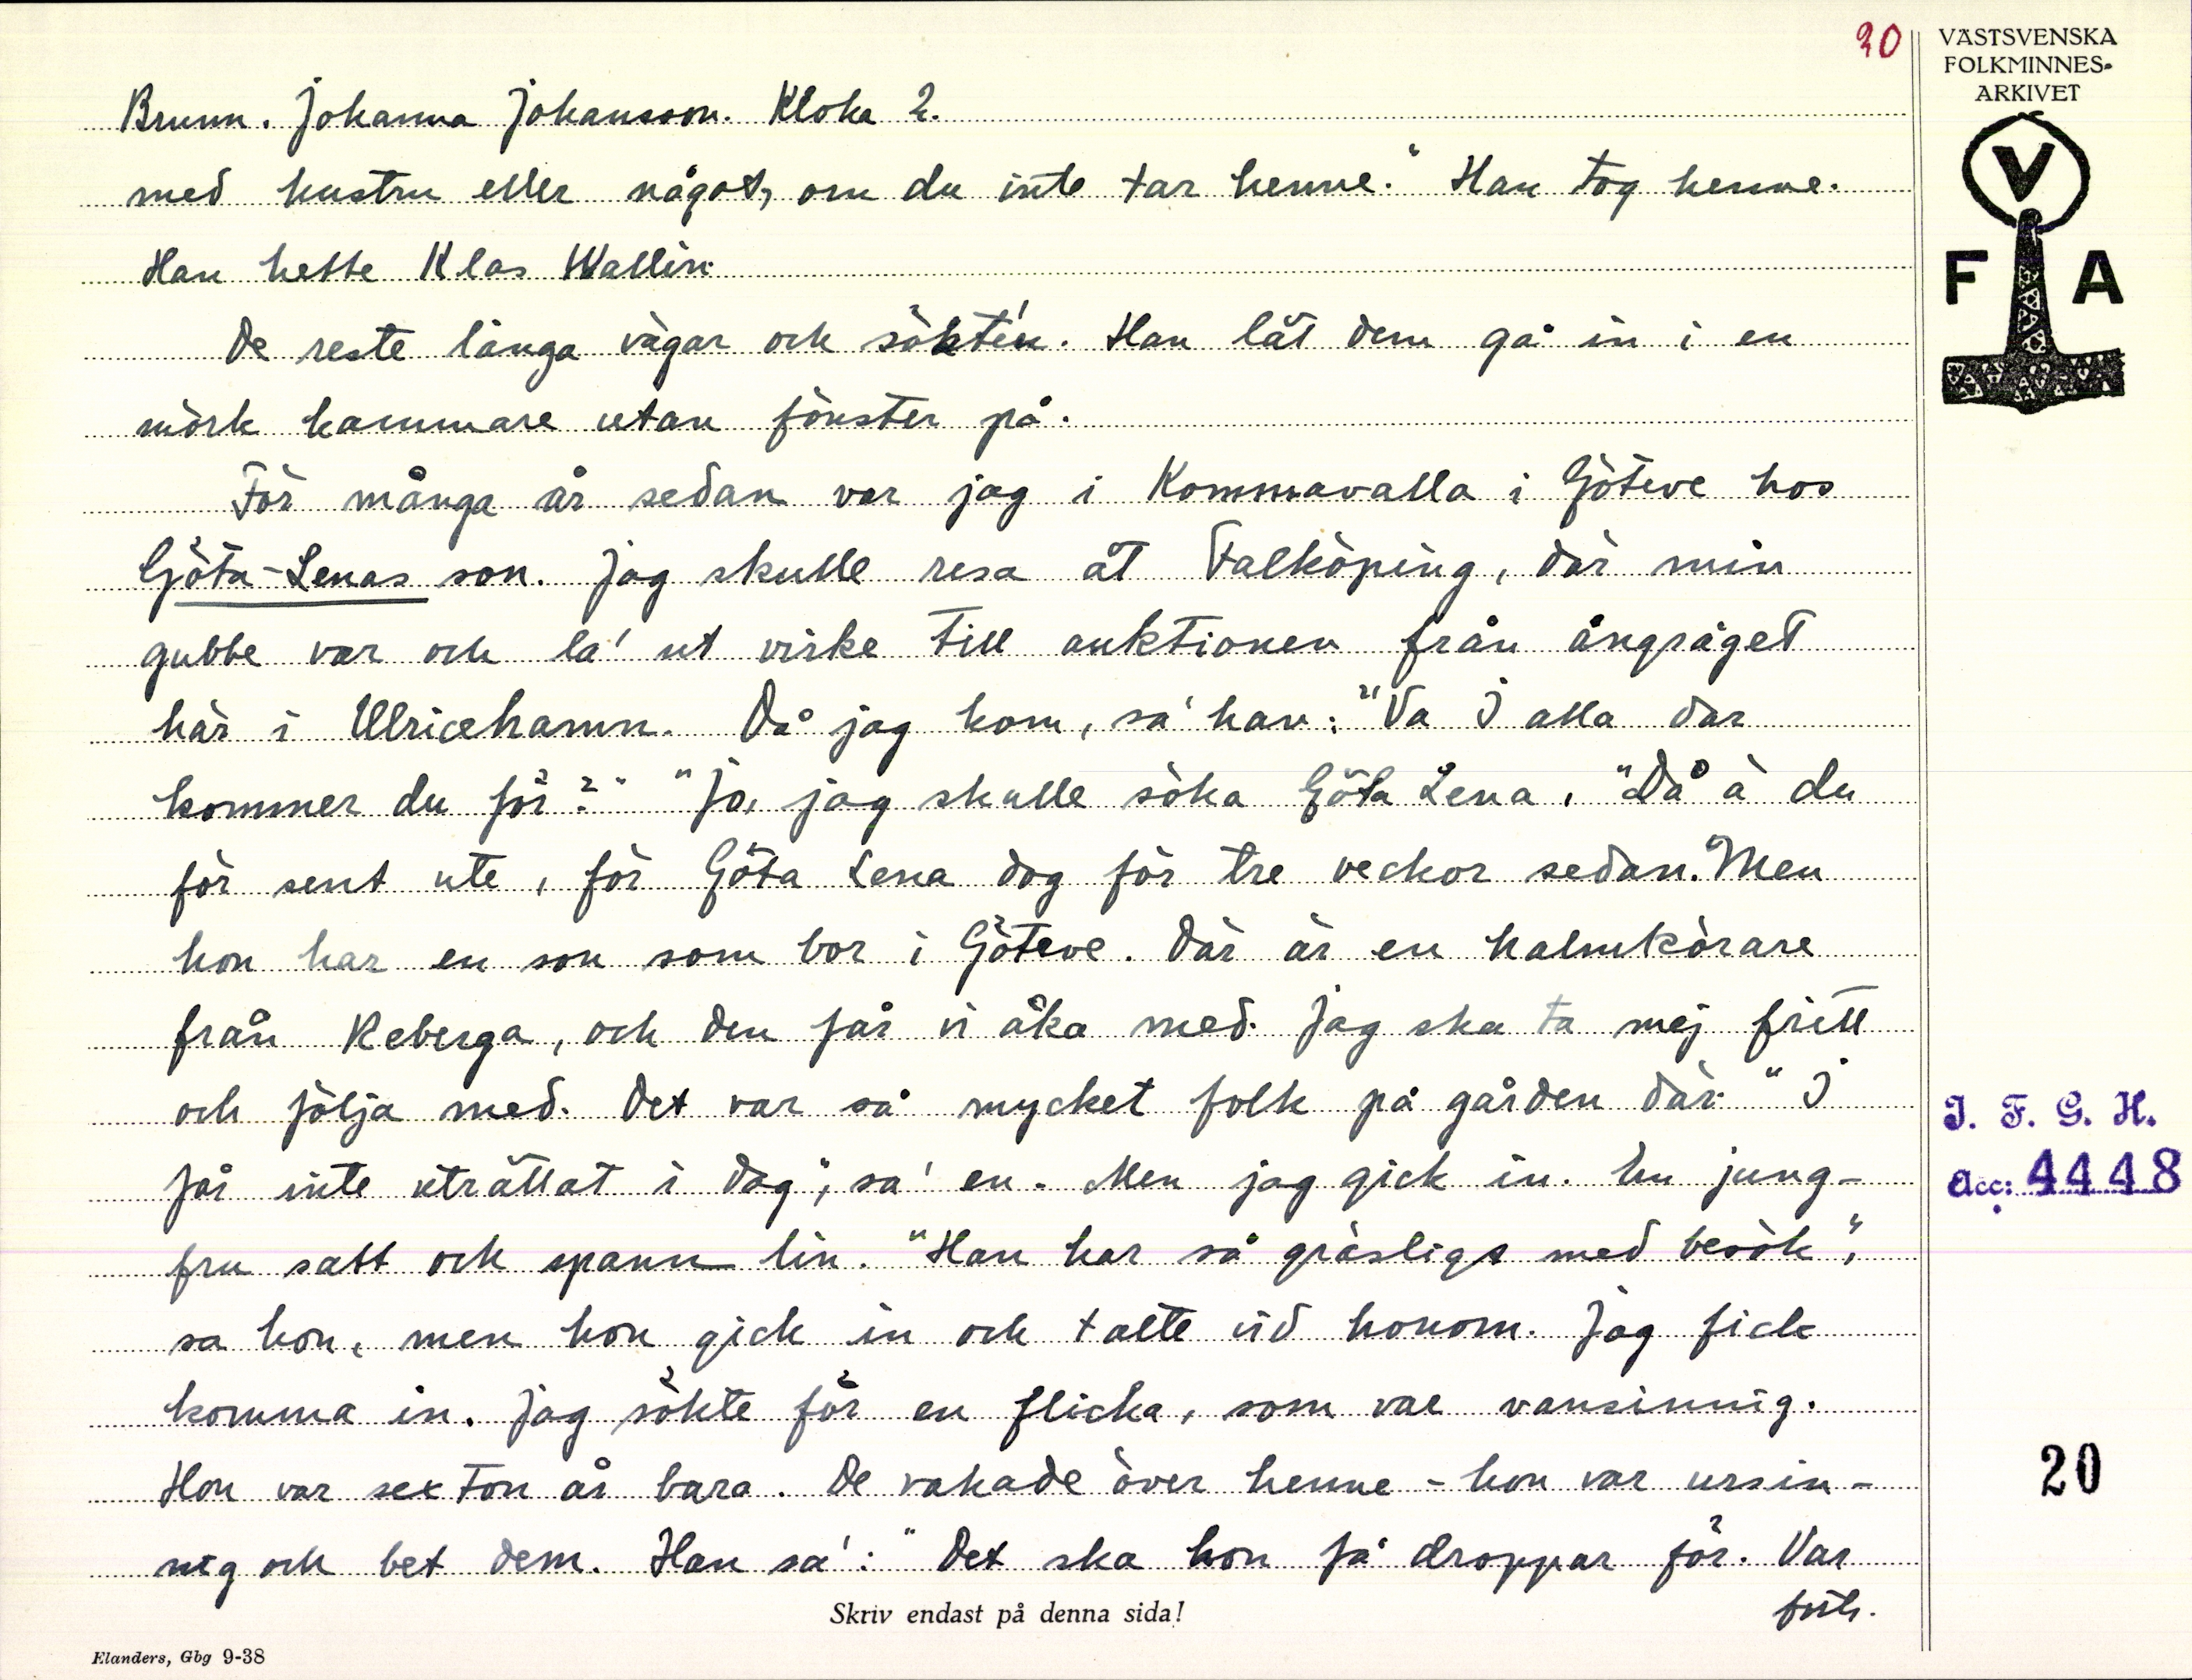 30
VÄSTSVENSKA
FOLKMINNES-
ARKIVET
V
F A
Brunn. Johanna Johansson. Kloka 2.
med hustru eller något, om du inte tar henne." Han tog henne.
Han hette Klas Wallin.
De reste långa vägar och sökte'n. Han lät dem gå in i en
mörk kammare utan fönster på.
För många år sedan var jag i Kommavalla i Göteve hos
Göta-Lenas son. Jag skulle resa åt Falköping, där min
gubbe var och la' ut virke till auktionen från ångsåget
här i Ulricehamn. Då jag kom, sa' han: "Va I alla dar
kommer du för?" "Jo, jag skulle söka Göta Lena, "Då ä du
för sent ute, för Göta Lena dog för tre veckor sedan. Men
hon har en son som bor i Göteve. Där är en halmkörare
från Reberga, och den får vi åka med. Jag ska ta mej fritt
och följa med. Det var så mycket folk på gården där. "I
får inte uträttat i dag", sa' en. Men jag gick in. En jung-
fru satt och spann lin. "Han har så gräsligt med besök",
sa hon, men hon gick in och talte vid honom. Jag fick
komma in. Jag sökte för en flicka, som var vansinnig.
Hon var sexton år bara. De vakade över henne - hon var ursin-
nig och bet dem. Han sa': "Det ska hon få droppar för. Var
forts.
I. F. G. H.
Acc: 4448
20
Skriv endast på denna sida!
Elanders, Gbg 9-38